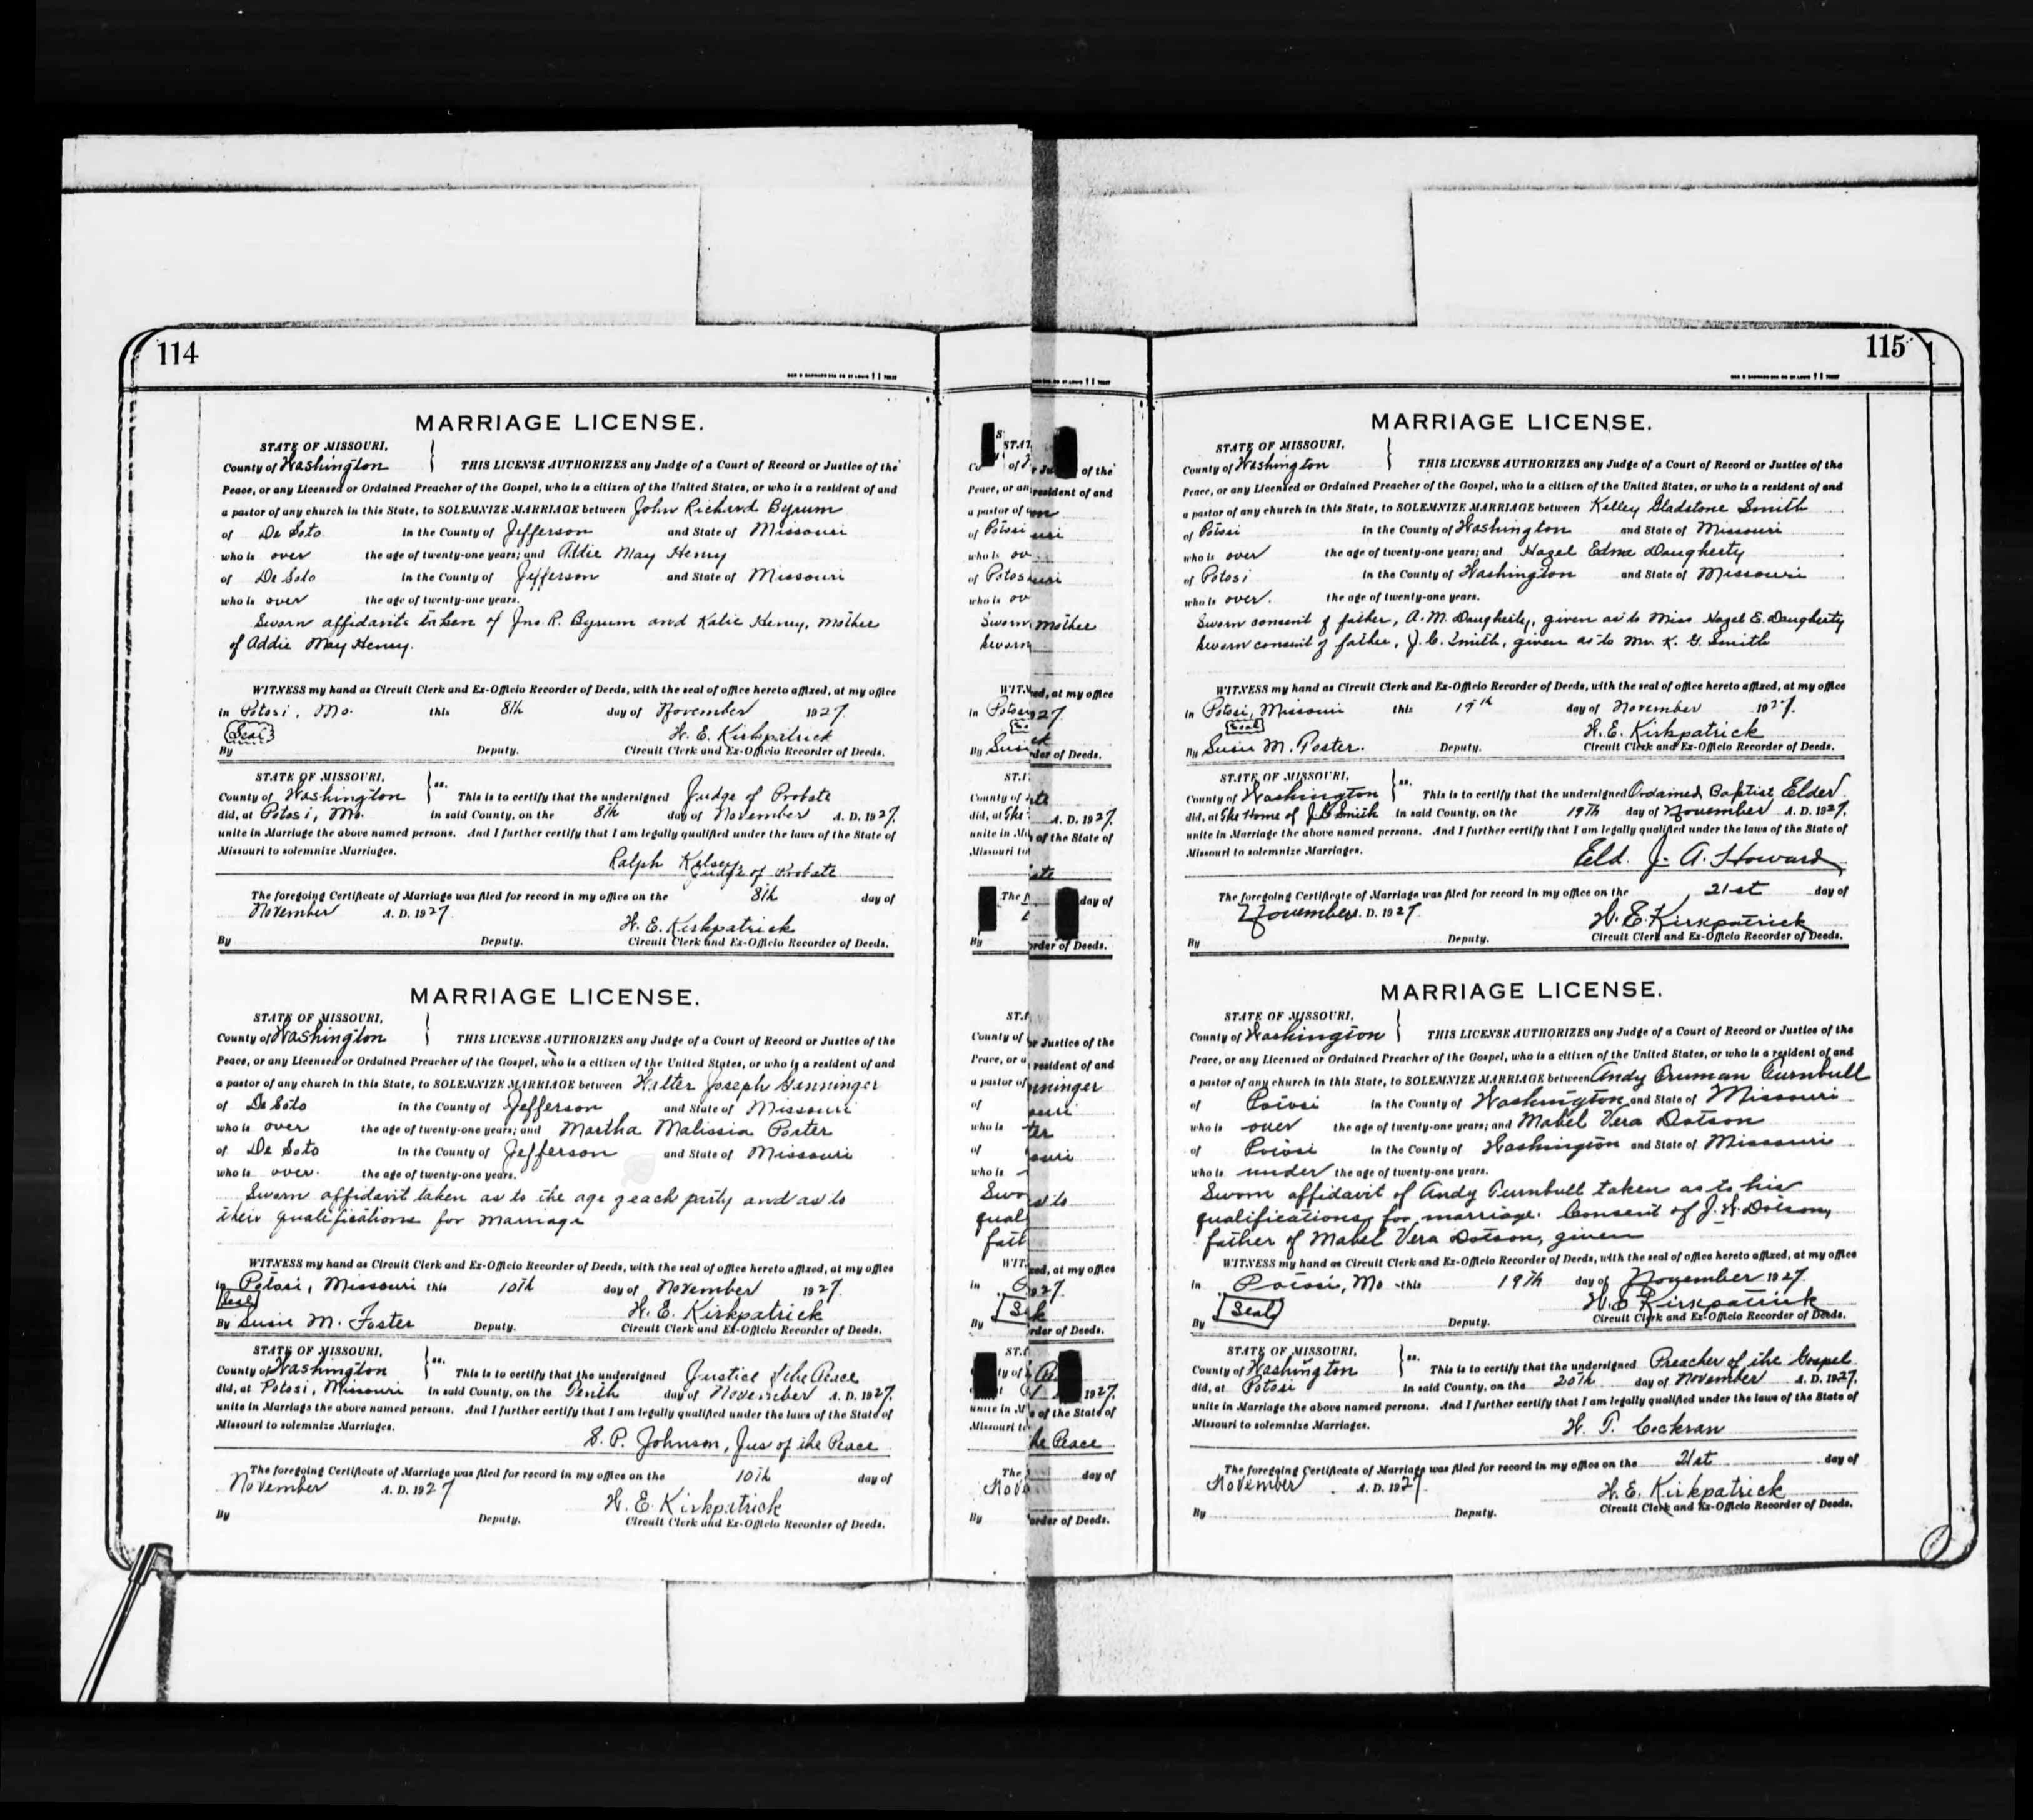 114
MARRIAGE LICENSE.
STATE OF MISSOURI,
County of Washington } THIS LICENSE AUTHORIZES any Judge of a Court of Record or Justice of the
Peace, or any Licensed or Ordained Preacher of the Gospel, who is a citizen of the United States, or who is a resident of and
a pastor of any church in this State, to SOLEMNIZE MARRIAGE between John Richard Byrum
of De Soto in the County of Jefferson and State of Missouri
who is over the age of twenty-one years; and Addie May Henry
of De Soto in the County of Jefferson and State of Missouri
who is over the age of twenty-one years.
Sworn affidavits taken of Jno. R. Byrum and Katie Henry, Mother
of Addie May Henry.
WITNESS my hand as Circuit Clerk and Ex-Officio Recorder of Deeds, with the seal of office hereto affixed, at my office
in Potosi, Mo. this 8th day of November 1927.
(Seal) H. E. Kirkpatrick
By Deputy. Circuit Clerk and Ex-Officio Recorder of Deeds.
STATE OF MISSOURI,
County of Washington } ss. This is to certify that the undersigned Judge of Probate
did, at Potosi, Mo. in said County, on the 8th day of November A. D. 1927.
unite in Marriage the above named persons. And I further certify that I am legally qualified under the laws of the State of
Missouri to solemnize Marriages.
Ralph Kelsey
Judge of Probate
The foregoing Certificate of Marriage was filed for record in my office on the 8th day of
November A. D. 1927.
H. E. Kirkpatrick
By Deputy. Circuit Clerk and Ex-Officio Recorder of Deeds.
MARRIAGE LICENSE.
STATE OF MISSOURI,
County of Washington } THIS LICENSE AUTHORIZES any Judge of a Court of Record or Justice of the
Peace, or any Licensed or Ordained Preacher of the Gospel, who is a citizen of the United States, or who is a resident of and
a pastor of any church in this State, to SOLEMNIZE MARRIAGE between Walter Joseph Genninger
of De Soto in the County of Jefferson and State of Missouri
who is over the age of twenty-one years; and Martha Malissia Porter
of De Soto in the County of Jefferson and State of Missouri
who is over. the age of twenty-one years.
Sworn affidavit taken as to the age of each party and as to
their qualifications for marriage
WITNESS my hand as Circuit Clerk and Ex-Officio Recorder of Deeds, with the seal of office hereto affixed, at my office
in Potosi, Missouri this 10th day of November 1927.
Seal H. E. Kirkpatrick
By Susie M. Foster Deputy. Circuit Clerk and Ex-Officio Recorder of Deeds.
STATE OF MISSOURI,
County of Washington } ss. This is to certify that the undersigned Justice of the Peace
did, at Potosi, Missouri in said County, on the Tenth day of November A. D. 1927.
unite in Marriage the above named persons. And I further certify that I am legally qualified under the laws of the State of
Missouri to solemnize Marriages.
S. P. Johnson, Jus of the Peace
The foregoing Certificate of Marriage was filed for record in my office on the 10th day of
November A. D. 1927
H. E. Kirkpatrick
By Deputy. Circuit Clerk and Ex-Officio Recorder of Deeds.
115
MARRIAGE LICENSE.
STATE OF MISSOURI,
County of Washington } THIS LICENSE AUTHORIZES any Judge of a Court of Record or Justice of the
Peace, or any Licensed or Ordained Preacher of the Gospel, who is a citizen of the United States, or who is a resident of and
a pastor of any church in this State, to SOLEMNIZE MARRIAGE between Kelley Gladstone Smith
of Potosi in the County of Washington and State of Missouri
who is over the age of twenty-one years; and Hazel Edna Daugherty
of Potosi in the County of Washington and State of Missouri
who is over. the age of twenty-one years.
Sworn consent of father, A. M. Daugherty, given as to Miss Hazel E. Daugherty
Sworn consent of father, J. C. Smith, given as to Mr. K. G. Smith
WITNESS my hand as Circuit Clerk and Ex-Officio Recorder of Deeds, with the seal of office hereto affixed, at my office
in Potosi, Missouri this 19th day of November 1927.
Seal H. E. Kirkpatrick
By Susie M. Foster. Deputy. Circuit Clerk and Ex-Officio Recorder of Deeds.
STATE OF MISSOURI,
County of Washington } ss. This is to certify that the undersigned Ordained Baptist Elder
did, at the Home of J C Smith in said County, on the 19th day of November A. D. 1927.
unite in Marriage the above named persons. And I further certify that I am legally qualified under the laws of the State of
Missouri to solemnize Marriages.
Eld. J. A. Howard
The foregoing Certificate of Marriage was filed for record in my office on the 21st day of
November A. D. 1927.
H. E. Kirkpatrick
By Deputy. Circuit Clerk and Ex-Officio Recorder of Deeds.
MARRIAGE LICENSE.
STATE OF MISSOURI,
County of Washington } THIS LICENSE AUTHORIZES any Judge of a Court of Record or Justice of the
Peace, or any Licensed or Ordained Preacher of the Gospel, who is a citizen of the United States, or who is a resident of and
a pastor of any church in this State, to SOLEMNIZE MARRIAGE between Andy Truman Turnbull
of Potosi in the County of Washington and State of Missouri
who is over the age of twenty-one years; and Mabel Vera Dotson
of Potosi in the County of Washington and State of Missouri
who is under the age of twenty-one years.
Sworn affidavit of Andy Turnbull taken as to his
qualifications for marriage. Consent of J. W. Dotson,
father of Mabel Vera Dotson, given
WITNESS my hand as Circuit Clerk and Ex-Officio Recorder of Deeds, with the seal of office hereto affixed, at my office
in Potosi, Mo this 19th day of November 1927.
Seal H. E. Kirkpatrick
By Deputy. Circuit Clerk and Ex-Officio Recorder of Deeds.
STATE OF MISSOURI,
County of Washington } ss. This is to certify that the undersigned Preacher of the Gospel
did, at Potosi in said County, on the 20th day of November A. D. 1927.
unite in Marriage the above named persons. And I further certify that I am legally qualified under the laws of the State of
Missouri to solemnize Marriages.
W. T. Cockran
The foregoing Certificate of Marriage was filed for record in my office on the 21st day of
November A. D. 1927.
H. E. Kirkpatrick
By Deputy. Circuit Clerk and Ex-Officio Recorder of Deeds.